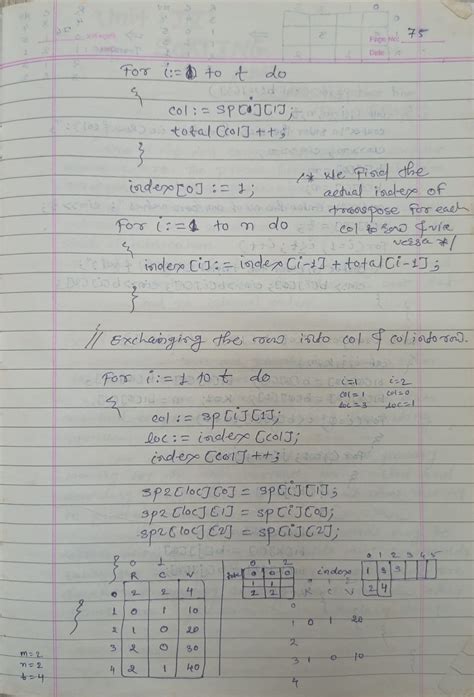 Page No. 75
Date
For i:=1 to t do
{
col:= sp[i][1];
total[col]++;
}
index[0]:=1;
/* We find the
actual index of
transpose for each
col to row & vice
versa */
For i:=1 to n do
{
index[i]:= index[i-1]+total[i-1];
}
// Exchanging the row into col & col into row.
For i:=1 to t do
{
i=1 i=2
col=1 col=0
loc=3 loc=1
col:= sp[i][1];
loc:= index[col];
index[col]++;
sp2[loc][0] = sp[i][1];
sp2[loc][1] = sp[i][0];
sp2[loc][2] = sp[i][2];
}
0 1
R C V
0 2 2 4
1 0 1 10
2 1 0 20
3 2 0 30
4 2 1 40
m=2
n=2
t=4
0 1 2
0 0 0
1 1
2 2
index
0 1 2 3 4 5
1 3 3
2 4
R C V
0
1 0 1 20
2
3 1 0 10
4